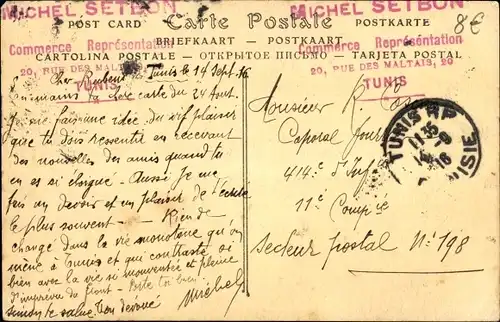 MICHEL SETBON
Commerce Représentation
20, RUE DES MALTAIS, 20
TUNIS
MICHEL SETBON
Commerce Représentation
20, RUE DES MALTAIS, 20
TUNIS
8€
POST CARD
Carte Postale
POSTKARTE
BRIEFKAART - POSTKAART
CARTOLINA POSTALE - ОТКРЫТОЕ ПИСЬМО - TARJETA POSTAL
Tunis le 14 Sept 16
carte du 24 Aout.
Je me fais une idée du vif plaisir
que tu dois ressentir en recevant
des nouvelles des amis quand tu
en es si éloigné - Aussi je me
fais un devoir et un plaisir de t'écrire
le plus souvent - Rien de
changé dans la vie monotone qu'on
mène à Tunis et qui contraste si
bien avec la vie si mouventée et pleine
d'imprévu du front - Porte toi bien
Ton dévoué
Michel
Monsieur R.
Caporal
414e d'Inf
11e Compie
Secteur postal N° 198
TUNIS RP
TUNISIE